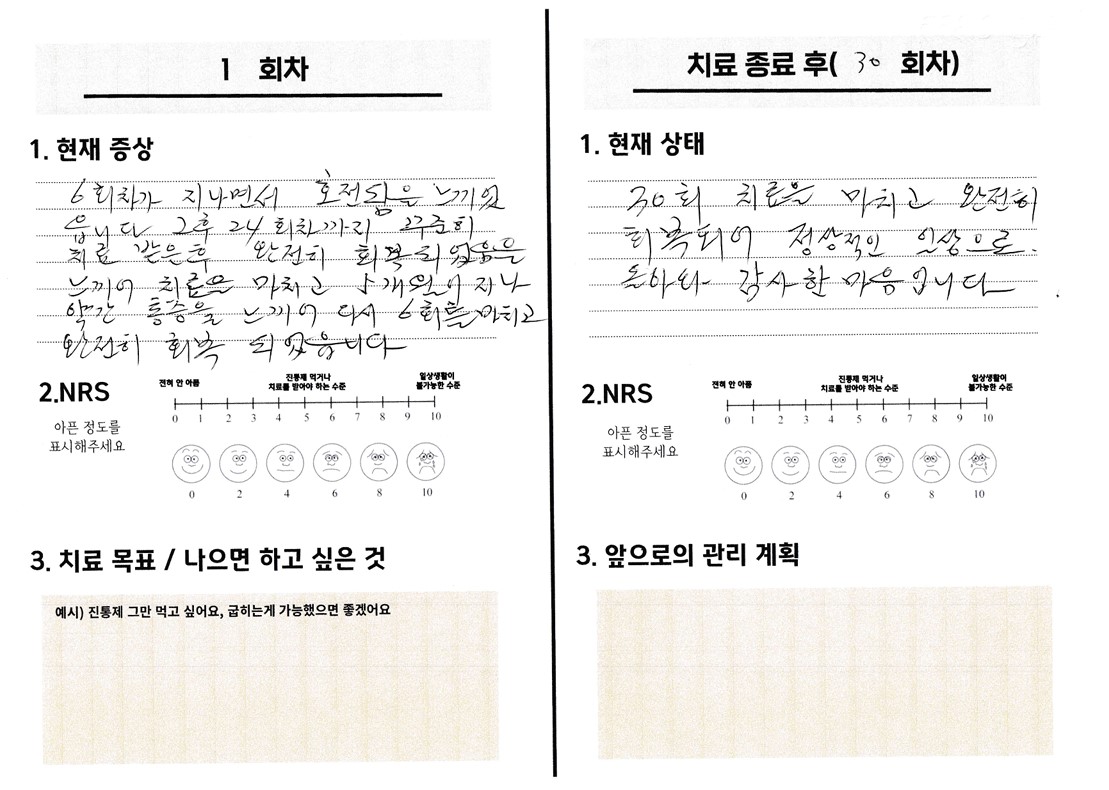 1 회차
1. 현재 증상
6회차가 지나면서 호전됨을 느끼었
읍니다 그후 24회차까지 꾸준히
치료 받은후 완전히 회복되었음을
느끼어 치료을 마치고 5개월이 지나
약간 통증을 느끼어 다시 6회를 마치고
완전히 회복 되었읍니다
2.NRS
아픈 정도를
표시해주세요
전혀 안 아픔
진통제 먹거나
치료를 받아야 하는 수준
일상생활이
불가능한 수준
0 1 2 3 4 5 6 7 8 9 10
0 2 4 6 8 10
3. 치료 목표 / 나으면 하고 싶은 것
예시) 진통제 그만 먹고 싶어요, 굽히는게 가능했으면 좋겠어요
치료 종료 후( 30 회차)
1. 현재 상태
30회 치료을 마치고 완전히
회복되어 정상적인 일상으로
돌아와 감사한 마음입니다
2.NRS
아픈 정도를
표시해주세요
전혀 안 아픔
진통제 먹거나
치료를 받아야 하는 수준
일상생활이
불가능한 수준
0 1 2 3 4 5 6 7 8 9 10
0 2 4 6 8 10
3. 앞으로의 관리 계획